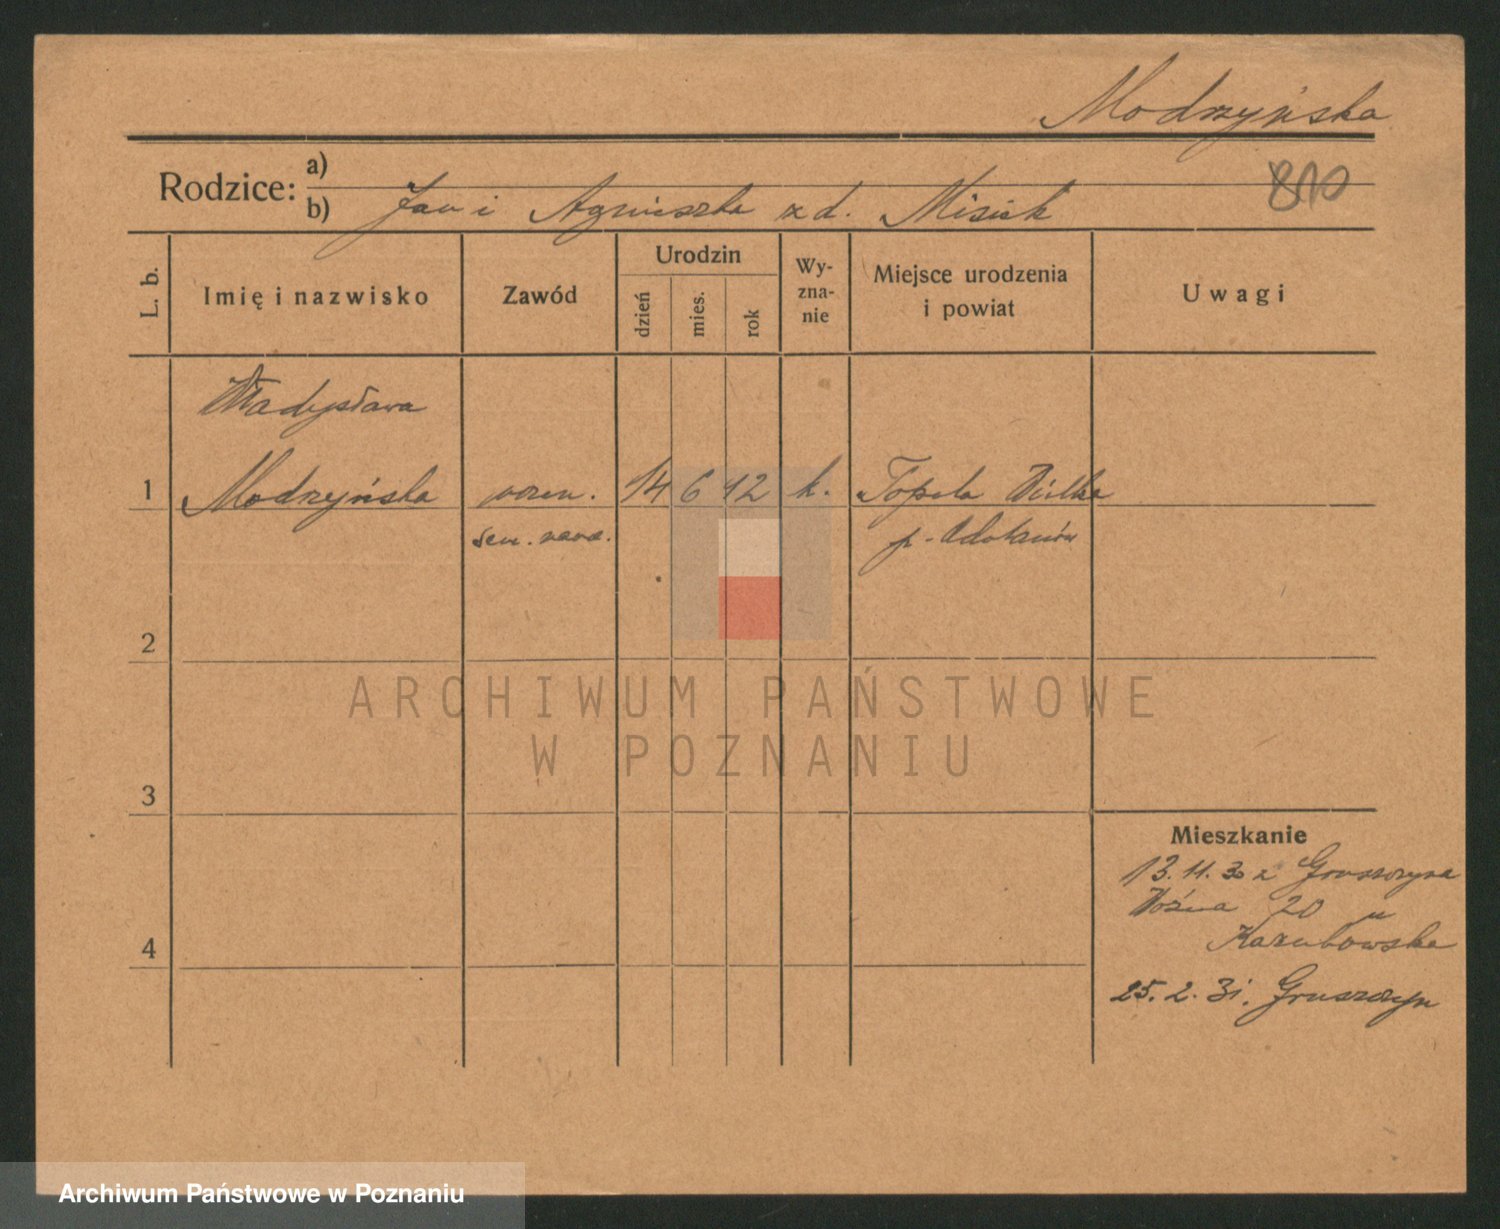 Modrzyńska
810
Rodzice: a)
b) Jan i Agnieszka z d. Misiek
L. b.
Imię i nazwisko
Zawód
Urodzin
dzień
mies.
rok
Wy-
zna-
nie
Miejsce urodzenia
i powiat
Uwagi
Władysława
1 Modrzyńska uczen. 14 6 12 k. Topola Wielka
sem. naucz. p. Odolanów
2
3
4
Mieszkanie
13.11.30 z Gruszczyna
Woźna 20 u
25.2.31. Gruszczyn
ARCHIWUM PAŃSTWOWE
W POZNANIU
Archiwum Państwowe w Poznaniu